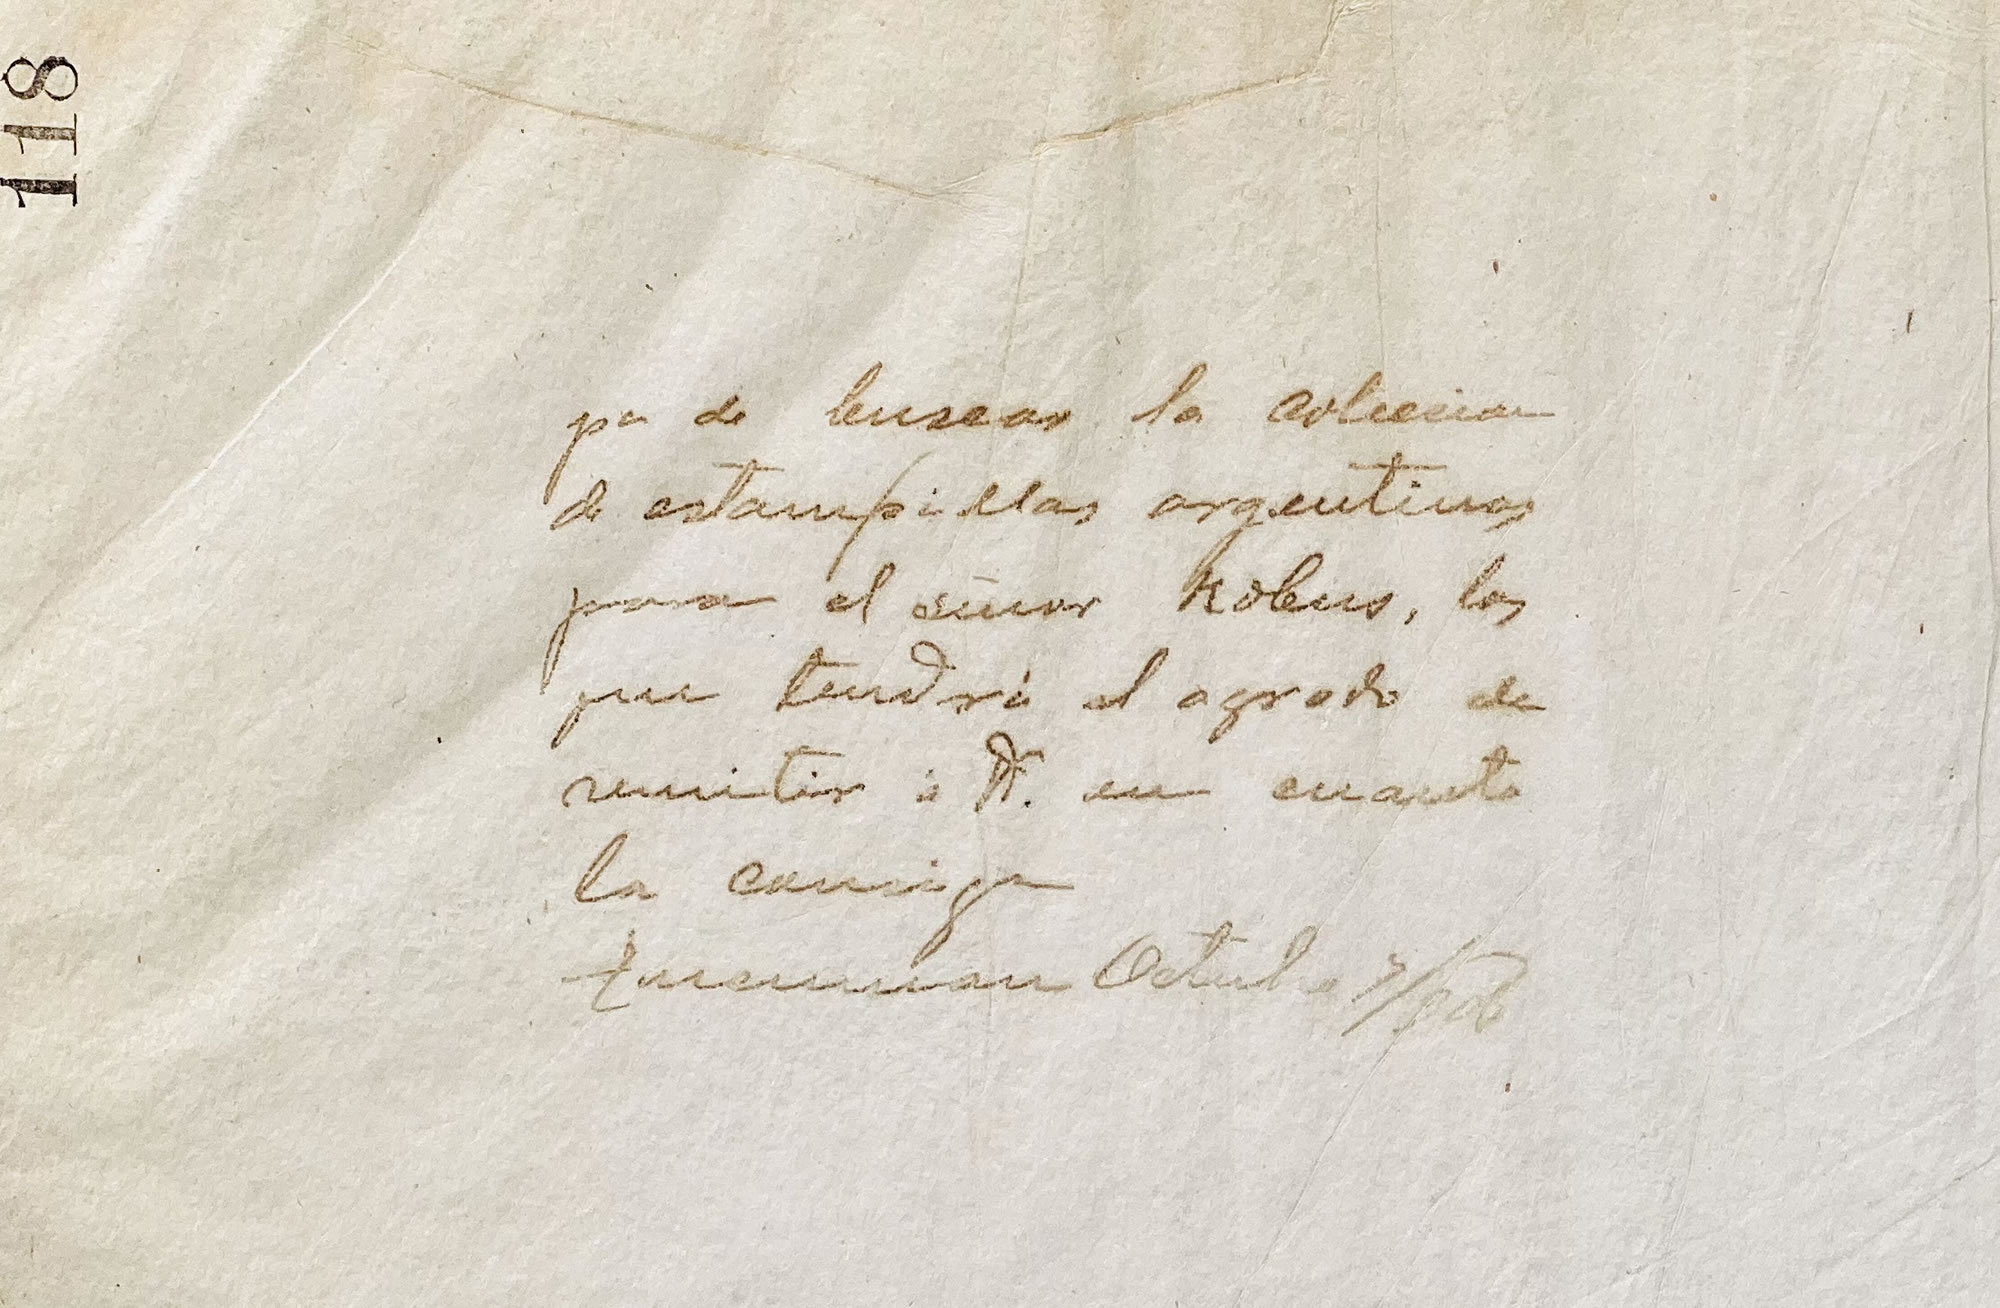 118
pa de buscar la colecion
de estampillas argentinas
para el señor Kobus, las
que tendré el agrado de
remitir á V. en cuanto
la consiga
Tucuman Octubre 7/908